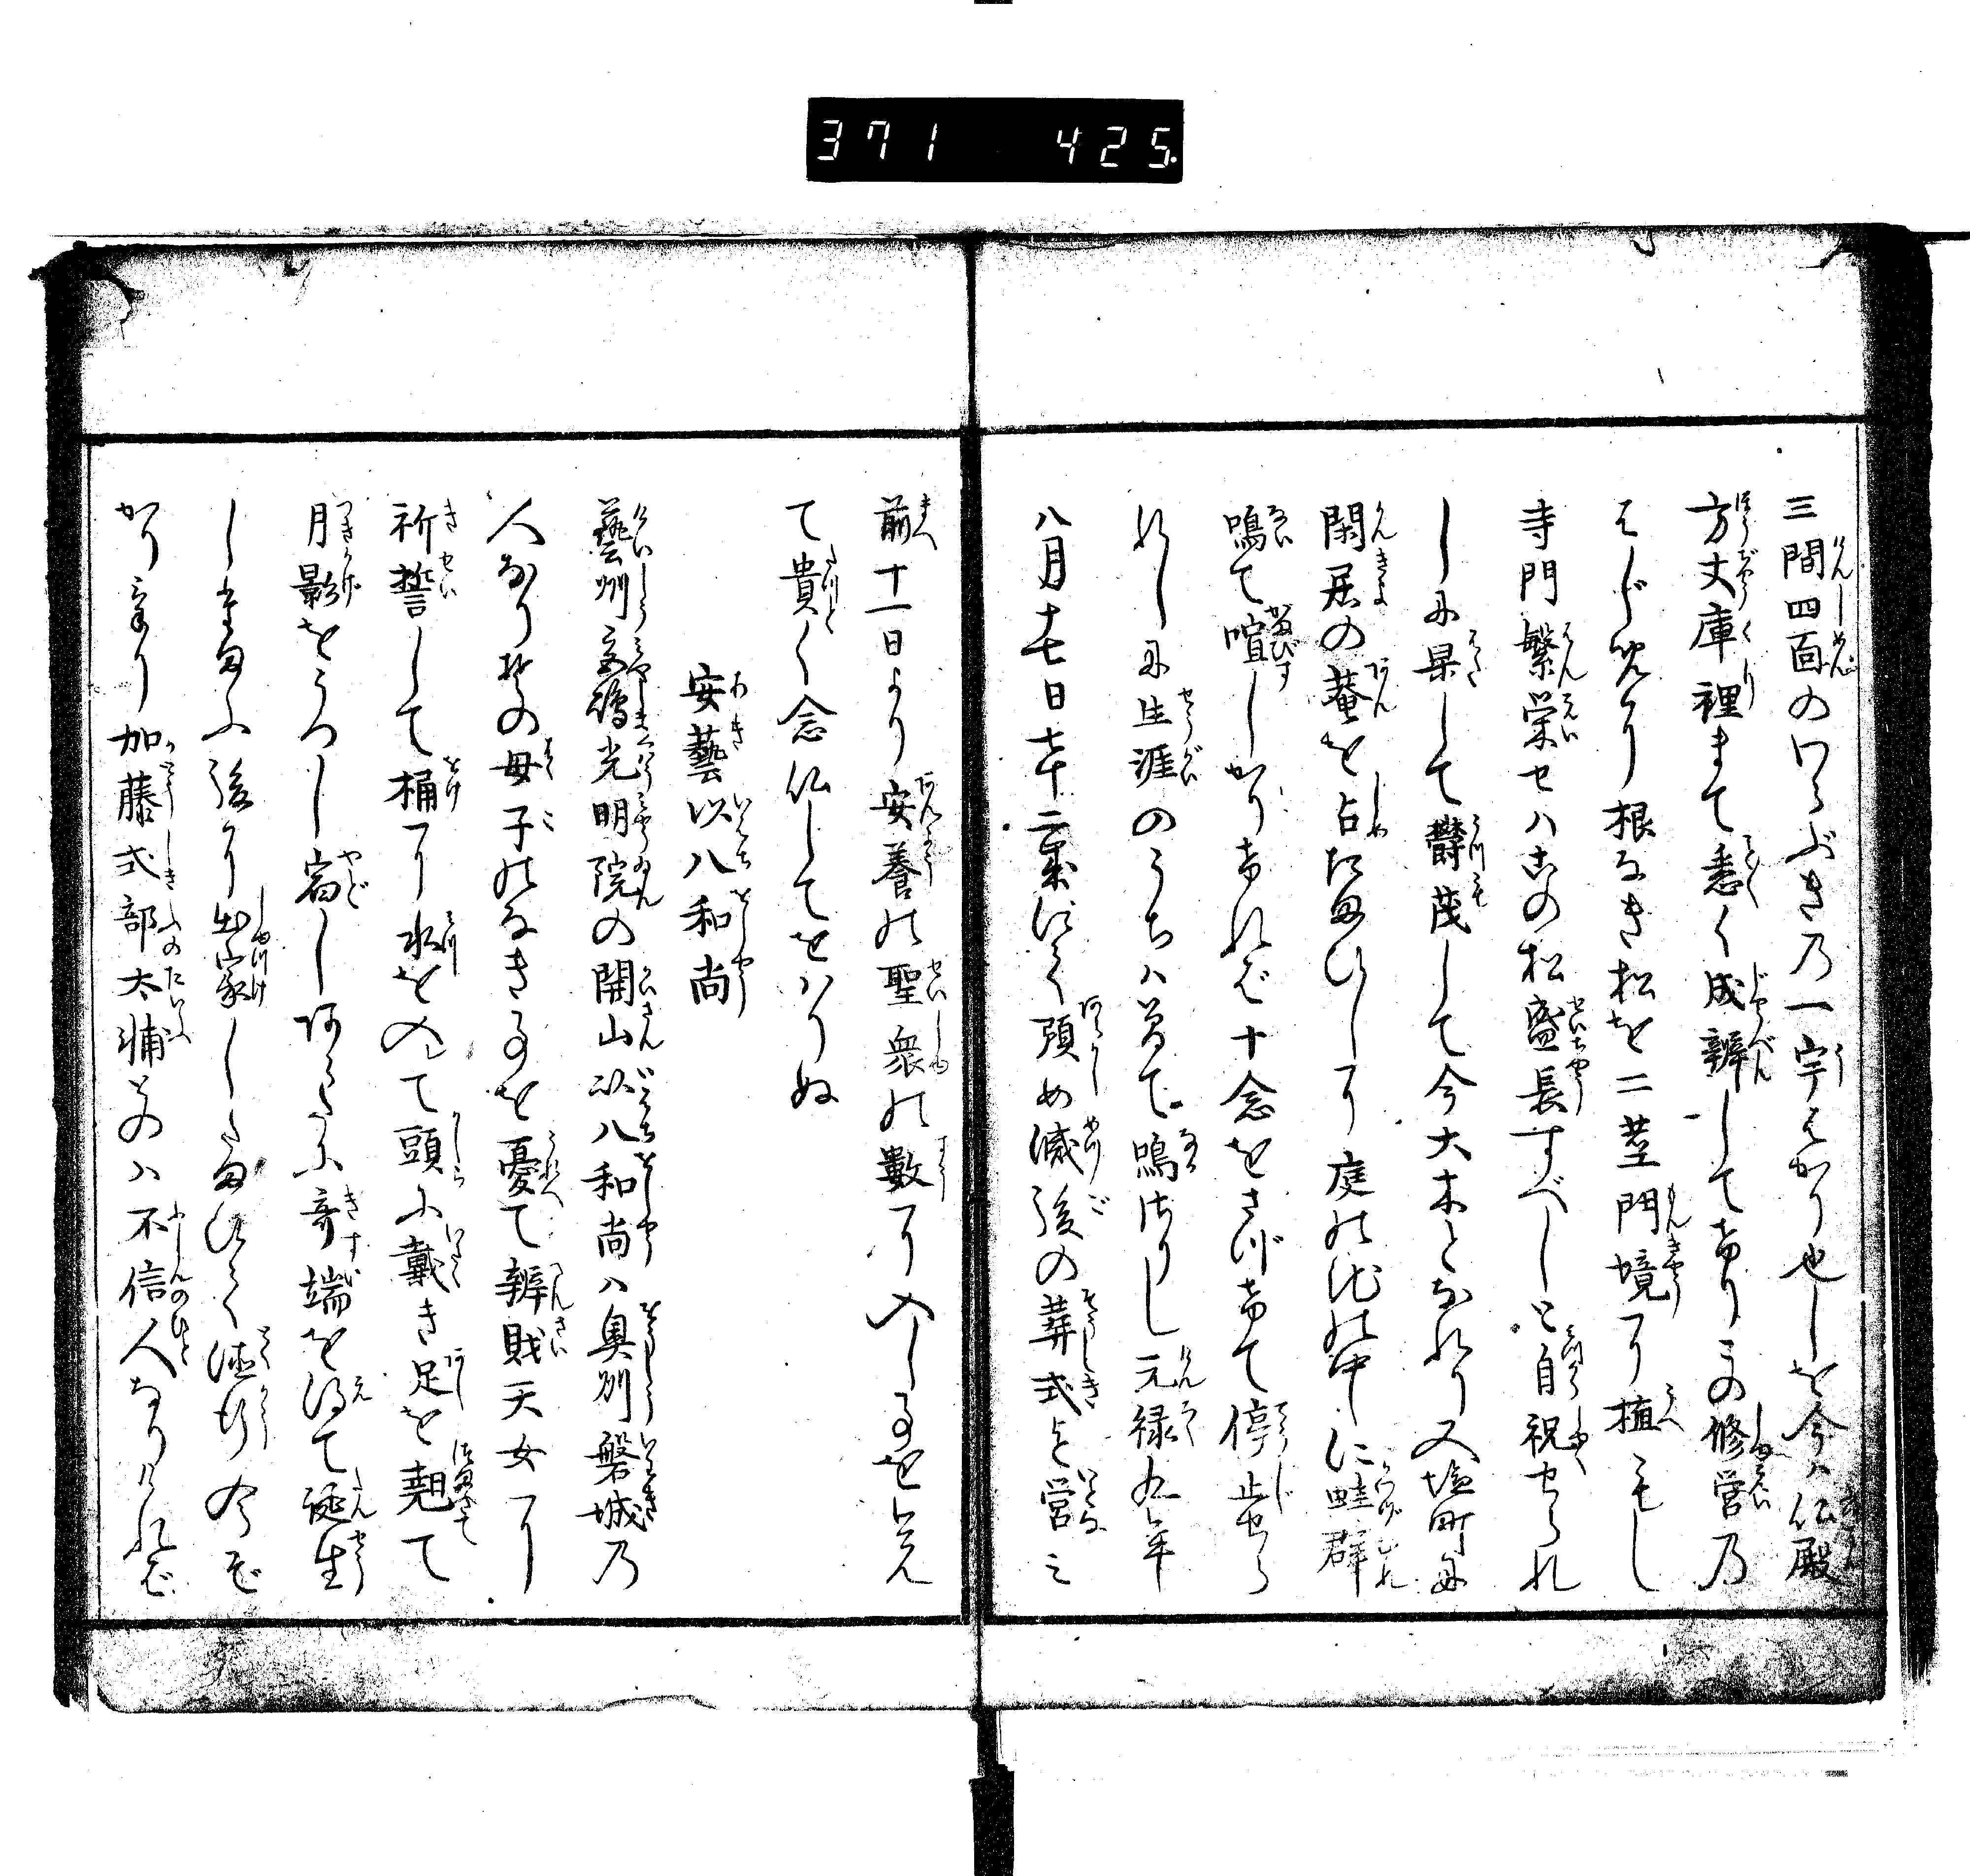 371 425.
三間四面のわらぶき乃一宇はかり也しを今ハ仏殿
方丈庫裡まて悉く成辨してけりこの修営乃
はじめより根なき松を二莖門境に植ゑし
寺門繁栄せハこの松盛長すべしと自祝せられ
しに果して欝茂して今大木となれり又塩町に
閑居の菴を占たまひしに庭の池の中に蛙群
鳴て喧しかりけれど十念をさづけて停止せら
れしに生涯のうちハ曽て鳴ざりし元禄九年
八月十七日七十二業にて預め滅後の葬式を営ミ
前十一日より安養の聖衆の数に入しるを覚え
て貴く念仏してをハりぬ
安藝以八和尚
藝州宮嶋光明院の開山以八和尚ハ奥州磐城乃
人なりその母子のなきるを憂て辨財天女に
祈誓して桶に水を入て頭に戴き足を翹て
月影をうつし宿しあらたに奇端を得て誕生
したまふ後に出家したまひて徳行
加藤式部太輔とのハ不信人なりけれど